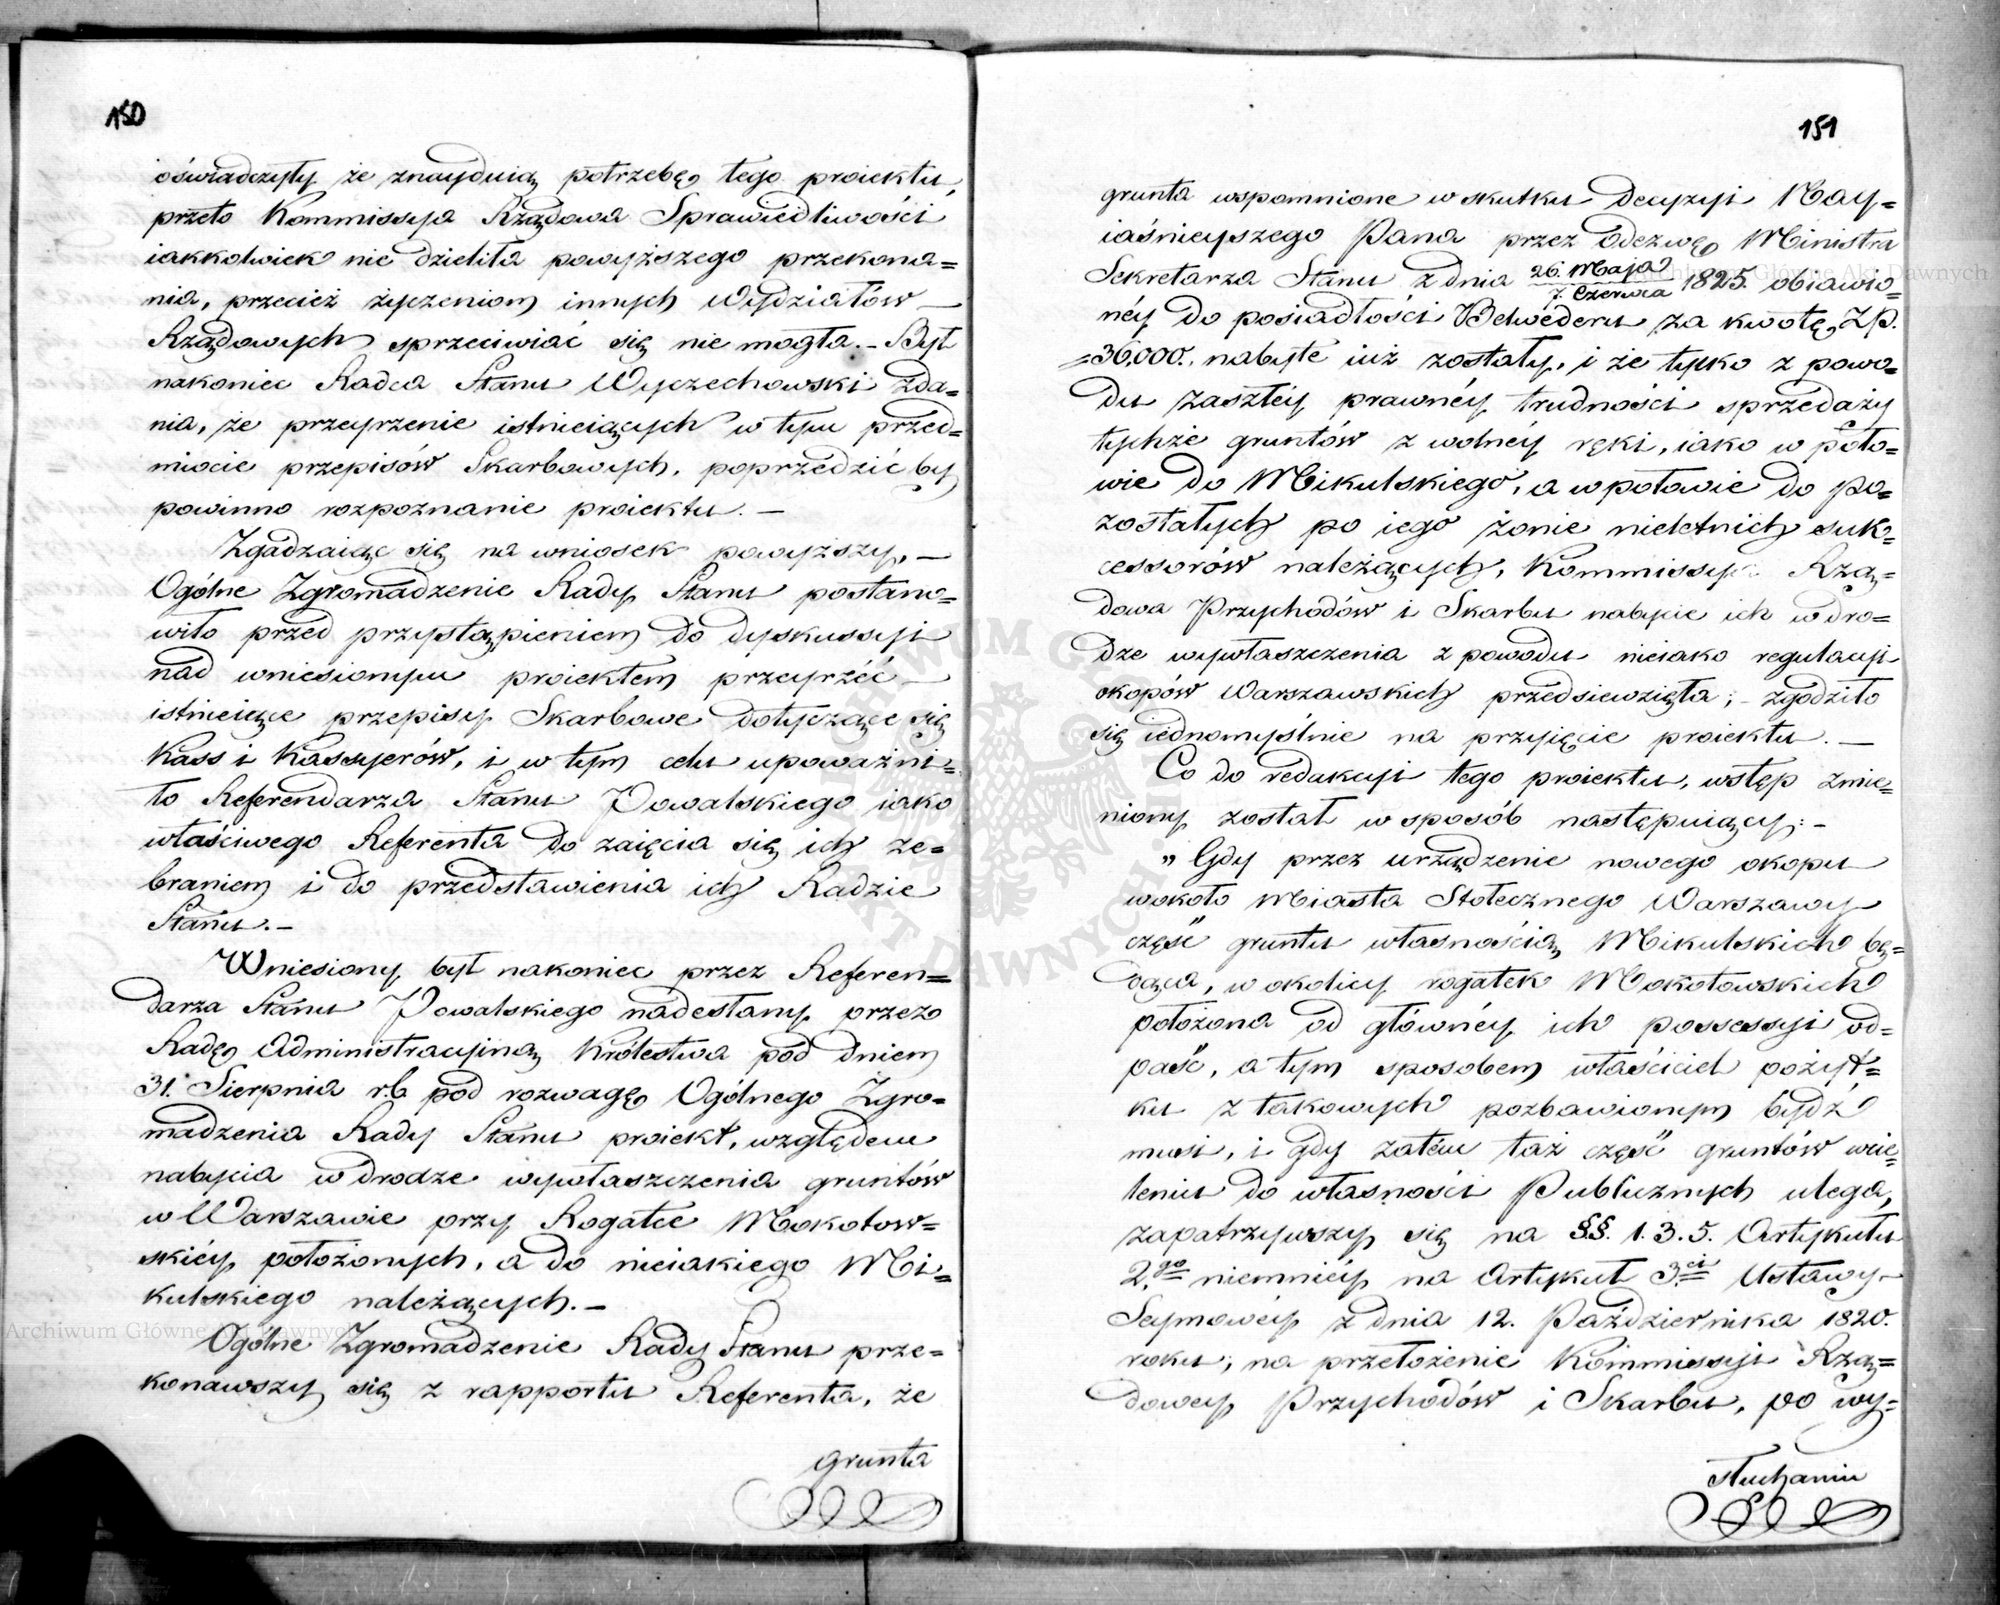 150
i oświadczyły że znayduią potrzebę tego proiektu,
przeto Kommissya Rządowa Sprawiedliwości
iakkolwiek nie dzieliła powyższego przekona=
nia, przecież życzeniom innych Wydziałów —
Rządowych sprzeciwiać się nie mogła. – Był
nakoniec Radca Stanu Wyczechowski zda=
nia, że przeyrzenie istnieiących w tym przed=
miocie przepisów Skarbowych, poprzedzić by
powinno rozpoznanie proiektu. —
Zgadzaiąc się na wniosek powyższy, —
Ogólne Zgromadzenie Rady Stanu postano=
wiło przed przystąpieniem do dyskussyi
nad wniesionym proiektem przeyrzéć —
istnieiące przepisy Skarbowe dotyczące się
Kass i Kassyerów, i w tym celu upoważni=
ło Referendarza Stanu Powalskiego iako
właściwego Referenta do zaięcia się ich ze=
braniem i do przedstawienia ich Radzie
Stanu. –
Wniesiony był nakoniec przez Referen=
darza Stanu Powalskiego nadesłany przez
Radę Administracyiną Królestwa pod dniem
31. Sierpnia r.b. pod rozwagę Ogólnego Zgro=
madzenia Rady Stanu proiekt, względem
nabycia w drodze wywłaszczenia gruntów
w Warszawie przy Rogatce Mokotow=
skiéy położonych, a do nieiakiego Mi=
kulskiego należących. —
Ogólne Zgromadzenie Rady Stanu prze=
konawszy się z rapportu Referenta, że
grunta
151
grunta wspomnione w skutku Decyzyi Nay=
iaśnieyszego Pana przez odezwę Ministra
Sekretarza Stanu z dnia 26. Maja / 7. Czerwca 1825. obiawio=
néy do posiadłości Belwéderu za kwotę Zp.
=36,000., nabyte iuż zostały, i że tylko z powo=
du zaszłéy prawnéy trudności sprzedaży
tychże gruntów z wolnéy ręki, iako w poło=
wie do Mikulskiego, a w połowie do po=
zostałych po iego żonie nieletnich suk=
cessorów należących, Kommissya Rzą=
dowa Przychodów i Skarbu nabycie ich w dro=
dze wywłaszczenia z powodu nieiako regulacyi
okopów Warszawskich przedsiewzięła; – zgodziło
się iednomyślnie na przyięcie proiektu. —
Co do redakcyi tego proiektu, wstęp zmie=
niony został w sposób następuiący: –
„ Gdy przez urządzenie nowego okopu
wokoło Miasta Stołecznego Warszawy
część gruntu własnością Mikulskich bę=
dąca, w okolicy rogatek Mokotowskich
położona od głównéy ich possessyi od=
paść, a tym sposobem właściciel pożyt=
ku z takowych pozbawionym bydź
musi, i gdy zatém taż część gruntów wcie=
leniu do własności Publicznych ulega,
zapatrzywszy się na §§. 1. 3. 5. Artykułu
2.go niemniéy na Artykuł 3.ci Ustawy
Seymowéy z dnia 12. Października 1820.
roku; na przełożenie Kommissyi Rzą=
dowéy Przychodów i Skarbu, po wy=
słuchaniu
Archiwum Główne Akt Dawnych
Archiwum Główne Akt Dawnych